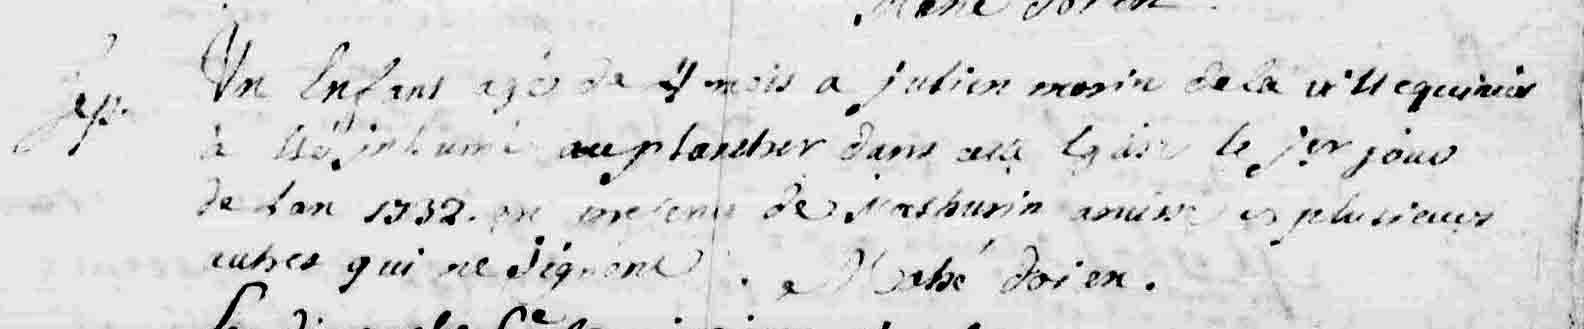 Sep.
Un Enfant agé de 4 mois a julien morin de la ville
à esté inhumé au plancher dans cette Eglise le jer jour
de Lan 1732. en presence de Mathurin et plusieurs
autres qui ne signent. Mahé doien.